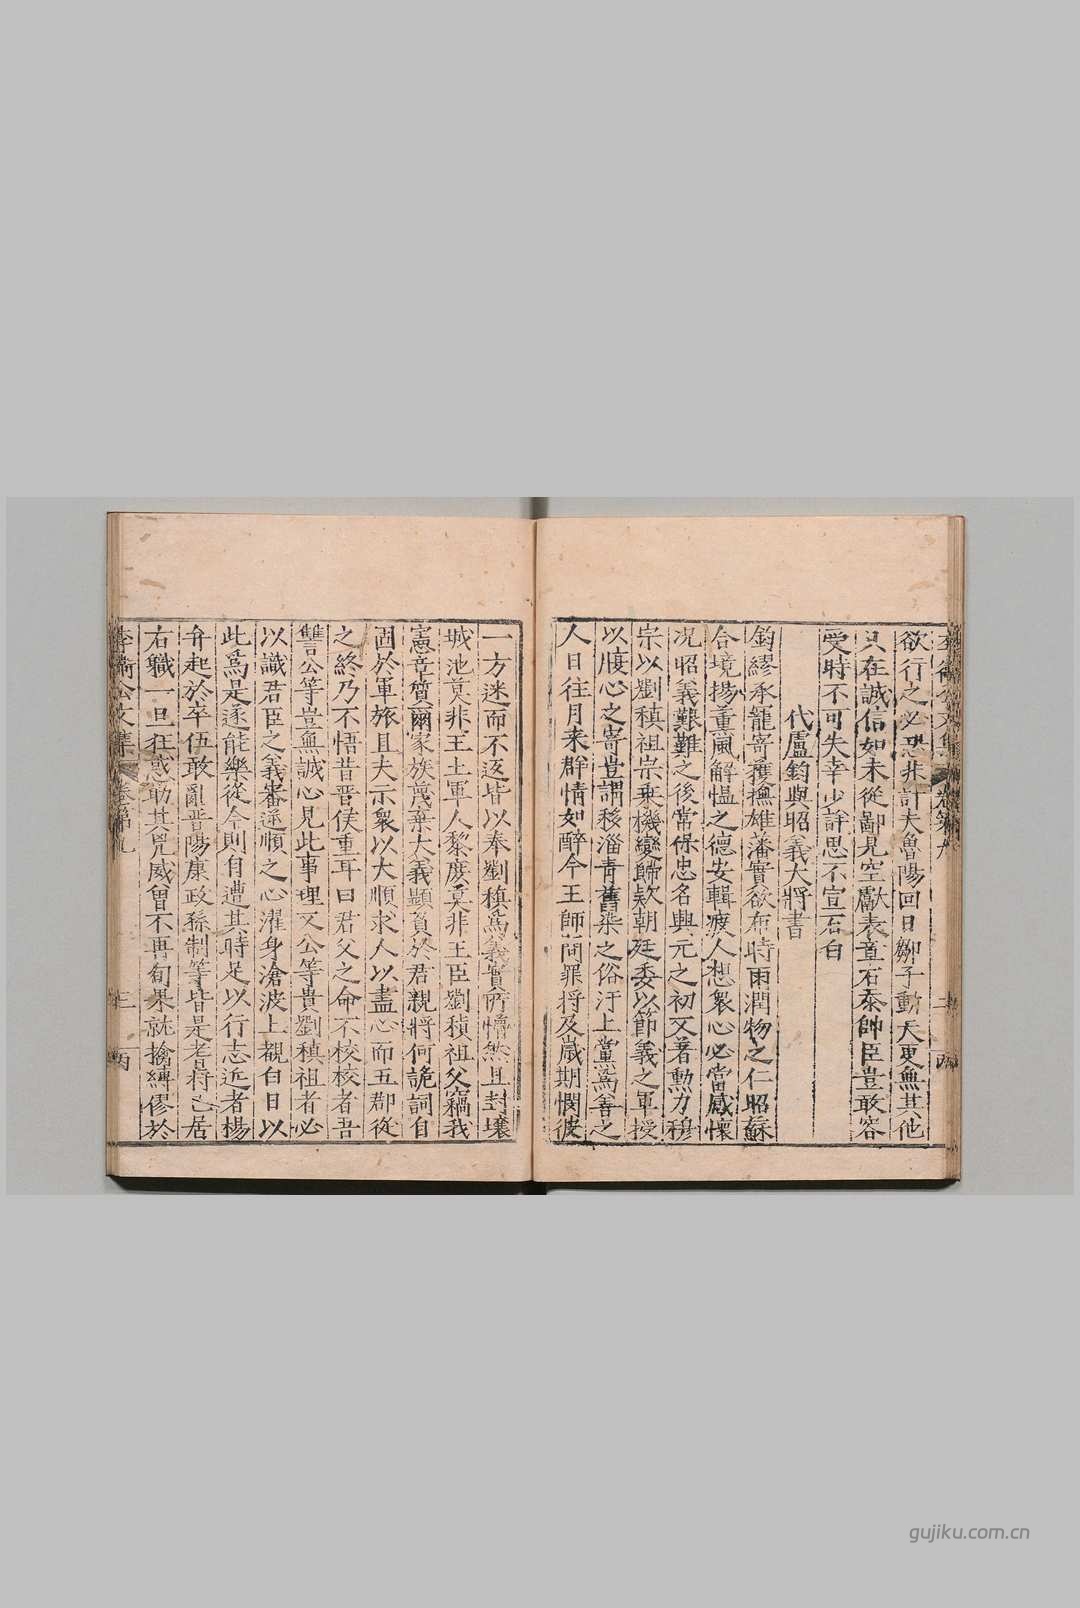 欲行之必恐非計夫魯陽回日鄒子動天更無其他
只在誠信如未從鄙見空獻表章石泰帥臣豈敢容
受時不可失幸少詳思不宣石白
代盧鈞與昭義大將書
鈞繆承寵寄獲撫雄藩實欲布時雨潤物之仁昭蘇
合境揚薫風解慍之德安輯疲人想衆心必當感懷
况昭義艱難之後常保忠名興元之初又著勲力穆
宗以劉稹祖宗乗機變歸欵朝廷委以節義之軍授
以腹心之寄豈謂移淄青舊染之俗汙上黨爲善之
人日往月来群情如醉今王師問罪将及歲期憫彼
一方迷而不返皆以奉劉稹爲義實所懵然且封壤
城池莫非王土軍人黎庶莫非王臣劉稹祖父竊我
憲章質爾家族蔑棄大義顯負於君親將何詭詞自
固於軍旅且夫示衆以大順求人以盡心而五郡從
之終乃不悟昔晉侯重耳曰君父之命不校校者吾
讐公等豈無誠心見此事理又公等貴劉稹祖者必
以識君臣之義審逆順之心濯身滄波上覩白日以
此爲是遂能樂從今則有遭其時足以行志近者楊
弁起於卒伍敢亂晋陽康政孫制等皆是老将已居
右職一旦狂惑助其兇威曾不再旬果就擒縛僇於
李衛公文集 卷第九 三 丙